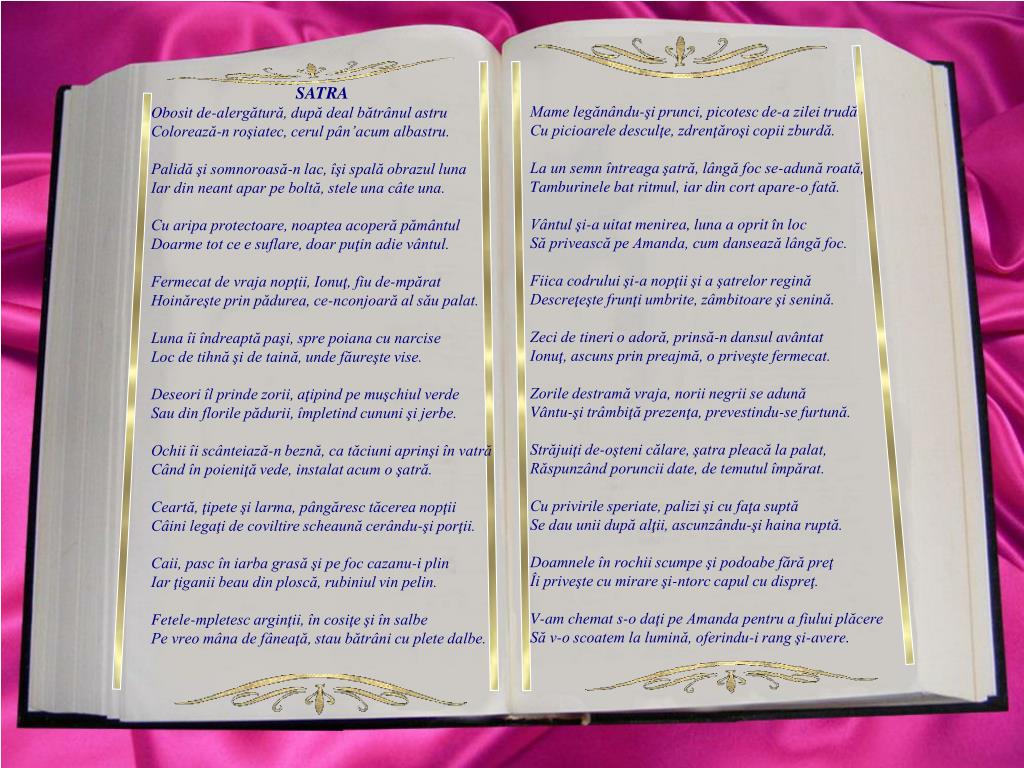 SATRA
Obosit de-alergătură, după deal bătrânul astru
Colorează-n roşiatec, cerul pân’acum albastru.
Palidă şi somnoroasă-n lac, îşi spală obrazul luna
Iar din neant apar pe boltă, stele una câte una.
Cu aripa protectoare, noaptea acoperă pământul
Doarme tot ce e suflare, doar puţin adie vântul.
Fermecat de vraja nopţii, Ionuţ, fiu de-mpărat
Hoinăreşte prin pădurea, ce-nconjoară al său palat.
Luna îi îndreaptă paşi, spre poiana cu narcise
Loc de tihnă şi de taină, unde făureşte vise.
Deseori îl prinde zorii, aţipind pe muşchiul verde
Sau din florile pădurii, împletind cununi şi jerbe.
Ochii îi scânteiază-n beznă, ca tăciuni aprinşi în vatră
Când în poieniţă vede, instalat acum o şatră.
Ceartă, ţipete şi larma, pângăresc tăcerea nopţii
Câini legaţi de coviltire scheaună cerându-şi porţii.
Caii, pasc în iarba grasă şi pe foc cazanu-i plin
Iar ţiganii beau din ploscă, rubiniul vin pelin.
Fetele-mpletesc arginţii, în cosiţe şi în salbe
Pe vreo mâna de fâneaţă, stau bătrâni cu plete dalbe.
Mame legănându-şi prunci, picotesc de-a zilei trudă
Cu picioarele desculţe, zdrenţăroşi copii zburdă.
La un semn întreaga şatră, lângă foc se-adună roată,
Tamburinele bat ritmul, iar din cort apare-o fată.
Vântul şi-a uitat menirea, luna a oprit în loc
Să privească pe Amanda, cum dansează lângă foc.
Fiica codrului şi-a nopţii şi a şatrelor regină
Descreţeşte frunţi umbrite, zâmbitoare şi senină.
Zeci de tineri o adoră, prinsă-n dansul avântat
Ionuţ, ascuns prin preajmă, o priveşte fermecat.
Zorile destramă vraja, norii negrii se adună
Vântu-şi trâmbiţă prezenţa, prevestindu-se furtună.
Străjuiţi de-oşteni călare, şatra pleacă la palat,
Răspunzând poruncii date, de temutul împărat.
Cu privirile speriate, palizi şi cu faţa suptă
Se dau unii după alţii, ascunzându-şi haina ruptă.
Doamnele în rochii scumpe şi podoabe fără preţ
Îi priveşte cu mirare şi-ntorc capul cu dispreţ.
V-am chemat s-o daţi pe Amanda pentru a fiului plăcere
Să v-o scoatem la lumină, oferindu-i rang şi-avere.